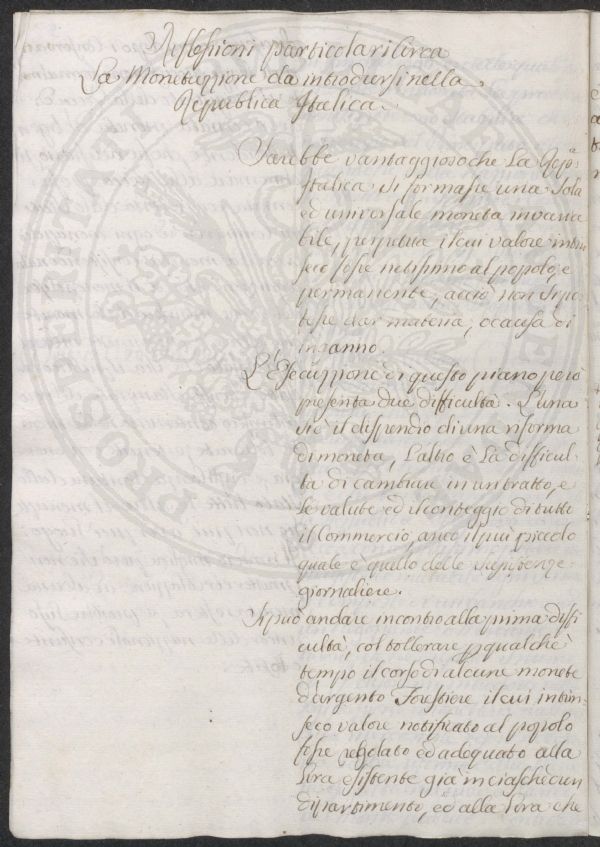 Riflessioni particolari circa
La Monetazzione da introdursi nella
Republica Italica.
Sarebbe vantaggioso che La Repᵃ.
Italica si formasse una sola
ed universale moneta invaria
bile, perpetua il cui valore intrin=
seco fosse notissimo al popolo, e
permanente, acciò non si po=
tesse dar materia, o causa di
inganno.
L'Esecuzzione di questo piano però
presenta due difficultà. L'una
si è il dispendio di una riforma
di moneta, L'altro è La difficul
tà di cambiare in un tratto, e
le valute ed il conteggio di tutto
il Commercio, anco il più piccolo
quale è quello delle
giornaliere.
Si può andare incontro alla prima diffi
cultà, col tollerare p qualche
tempo il corso di alcune monete
d'argento Forestiere il cui intrin=
seco valore notificato al popolo
fosse regolato ed adequato alla
Lira esistente già in ciaschedun
dipartimento, ed alla Lira che